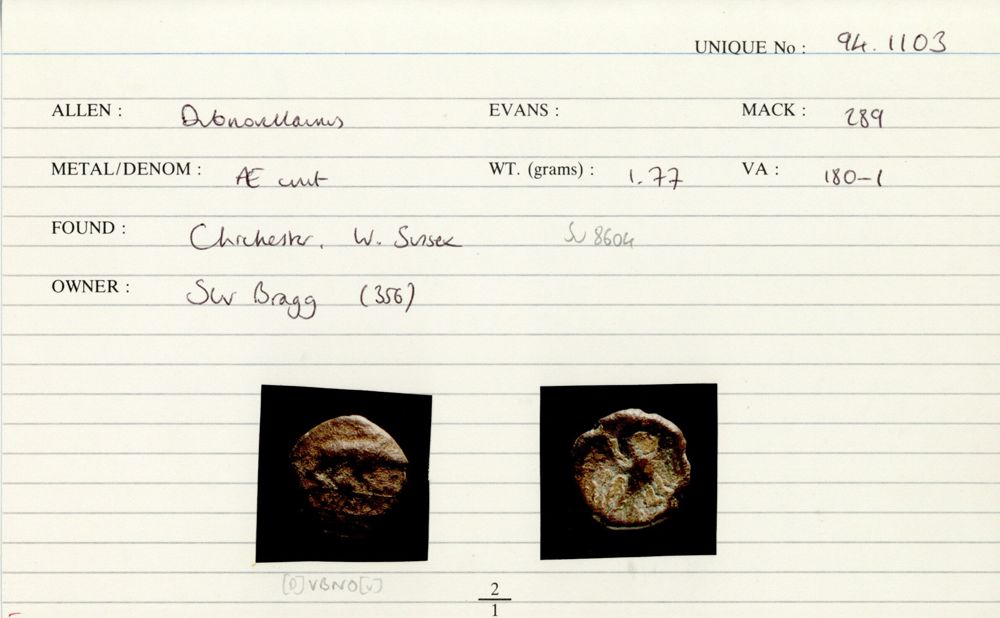 UNIQUE No : 94.1103
ALLEN : Dubnovellaunus EVANS : MACK : 289
METAL/DENOM : Æ unit WT. (grams) : 1.77 VA : 180-1
FOUND : Chichester, W. Sussex SU 8604
OWNER : SW Bragg (356)
[D]VBNO[V]
2
1